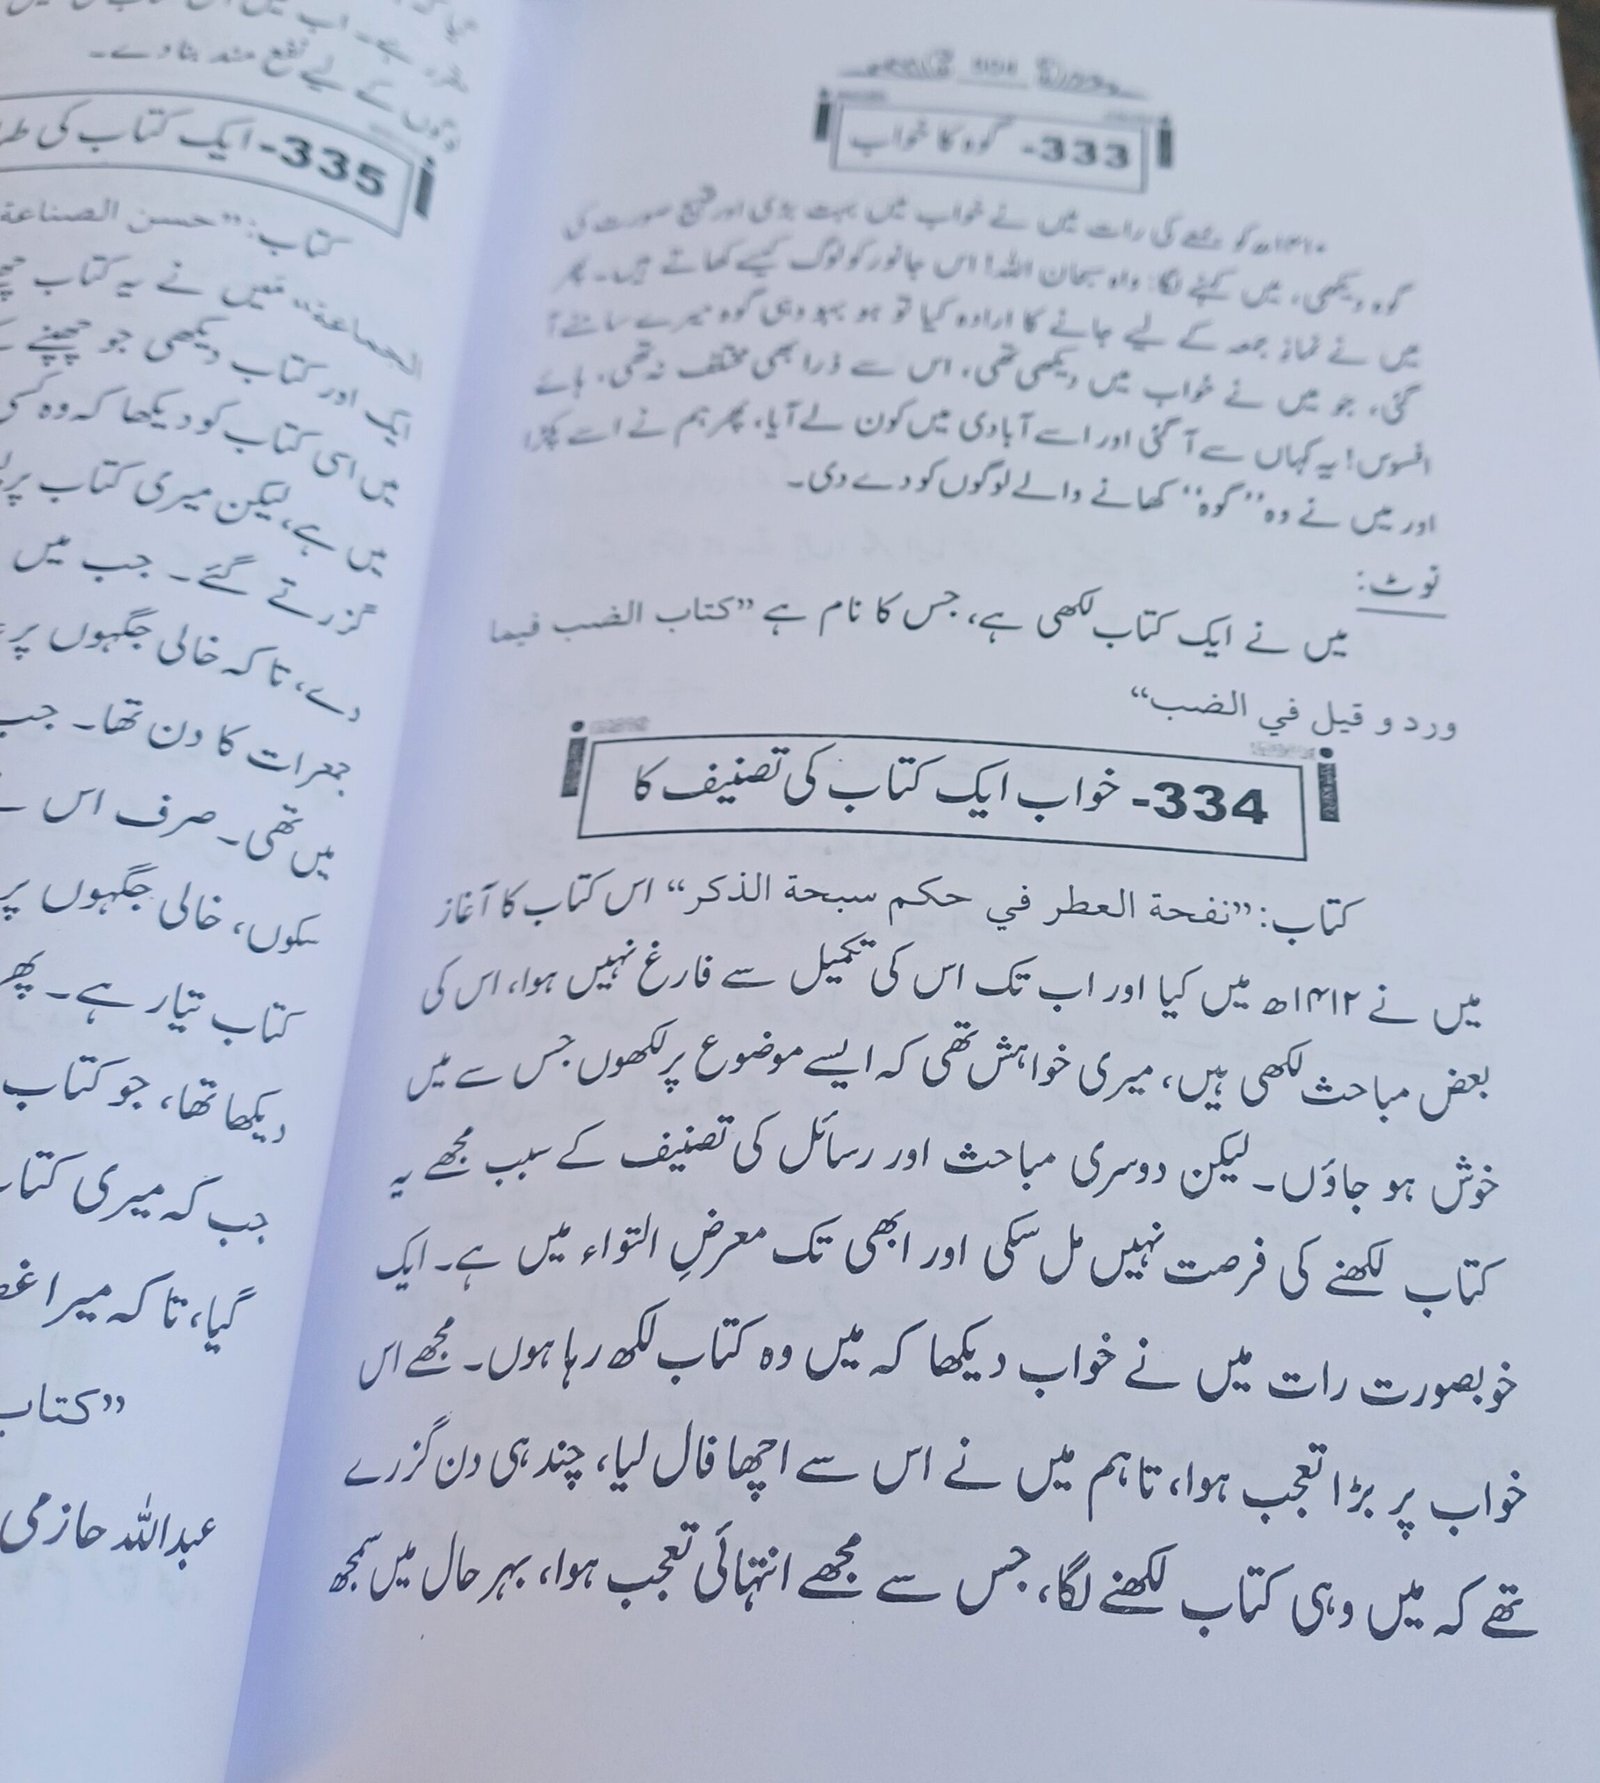 333- گوہ کا خواب
۱۴۱۰ھ کو جمعے کی رات میں نے خواب میں بہت بڑی اور قبیح صورت کی
گوہ دیکھی، میں کہنے لگا: واہ سبحان اللہ! اس جانور کو لوگ کیسے کھاتے ہیں۔ پھر
میں نے نمازِ جمعہ کے لیے جانے کا ارادہ کیا تو ہو بہو وہی گوہ میرے سامنے آ
گئی، جو میں نے خواب میں دیکھی تھی، اس سے ذرا بھی مختلف نہ تھی، ہائے
افسوس! یہ کہاں سے آ گئی اور اسے آبادی میں کون لے آیا، پھر ہم نے اسے پکڑا
اور میں نے وہ ’’گوہ‘‘ کھانے والے لوگوں کو دے دی۔
نوٹ:
میں نے ایک کتاب لکھی ہے، جس کا نام ہے ”کتاب الضب فیما
ورد و قيل في الضب“
334- خواب ایک کتاب کی تصنیف کا
کتاب: ”نفحة العطر في حكم سبحة الذكر“ اس کتاب کا آغاز
میں نے ۱۴۱۲ھ میں کیا اور اب تک اس کی تکمیل سے فارغ نہیں ہوا، اس کی
بعض مباحث لکھی ہیں، میری خواہش تھی کہ ایسے موضوع پر لکھوں جس سے میں
خوش ہو جاؤں۔ لیکن دوسری مباحث اور رسائل کی تصنیف کے سبب مجھے یہ
کتاب لکھنے کی فرصت نہیں مل سکی اور ابھی تک معرضِ التواء میں ہے۔ ایک
خوبصورت رات میں نے خواب دیکھا کہ میں وہ کتاب لکھ رہا ہوں۔ مجھے اس
خواب پر بڑا تعجب ہوا، تاہم میں نے اس سے اچھا فال لیا، چند ہی دن گزرے
تھے کہ میں وہی کتاب لکھنے لگا، جس سے مجھے انتہائی تعجب ہوا، بہر حال میں سمجھ
لوگوں کے لیے نفع مند بنا دے۔
335- ایک کتاب کی
کتاب: ”حسن الصناعة
الجماعة“ میں نے یہ کتاب
ایک اور کتاب دیکھی جو چھپنے
میں اسی کتاب کو دیکھا کہ وہ
میں ہے، لیکن میری کتاب پر
گزرتے گئے۔ جب میں
دے، تاکہ خالی جگہوں پر
جمعرات کا دن تھا۔ جب
میں تھی۔ صرف اس
سکوں، خالی جگہوں پر
کتاب تیار ہے۔ پھر
دیکھا تھا، جو کتاب
جب کہ میری
گیا، تاکہ میرا
”کتاب
عبداللہ حازمی